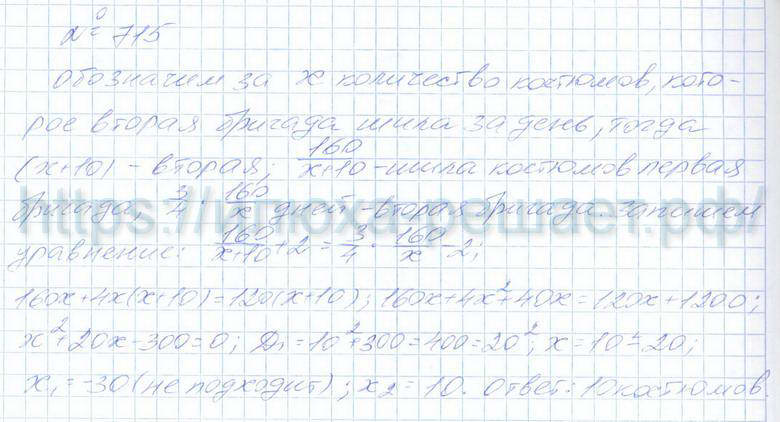 № 715
обозначим за x количество костюмов, кото-
рое вторая бригада шила за день, тогда
(x+10) - вторая; 160/(x+10) - шила костюмов первая
бригада, 3/4 · 160/x дней - вторая бригада. запишем
уравнение: 160/(x+10) + 2 = 3/4 · 160/x - 2;
160x+4x(x+10)=120(x+10); 160x+4x²+40x=120x+1200;
x²+20x-300=0; D₁=10²+300=400=20²; x=10±20;
x₁=-30 (не подходит); x₂=10. Ответ: 10 костюмов.
https://штюхарешает.рф/